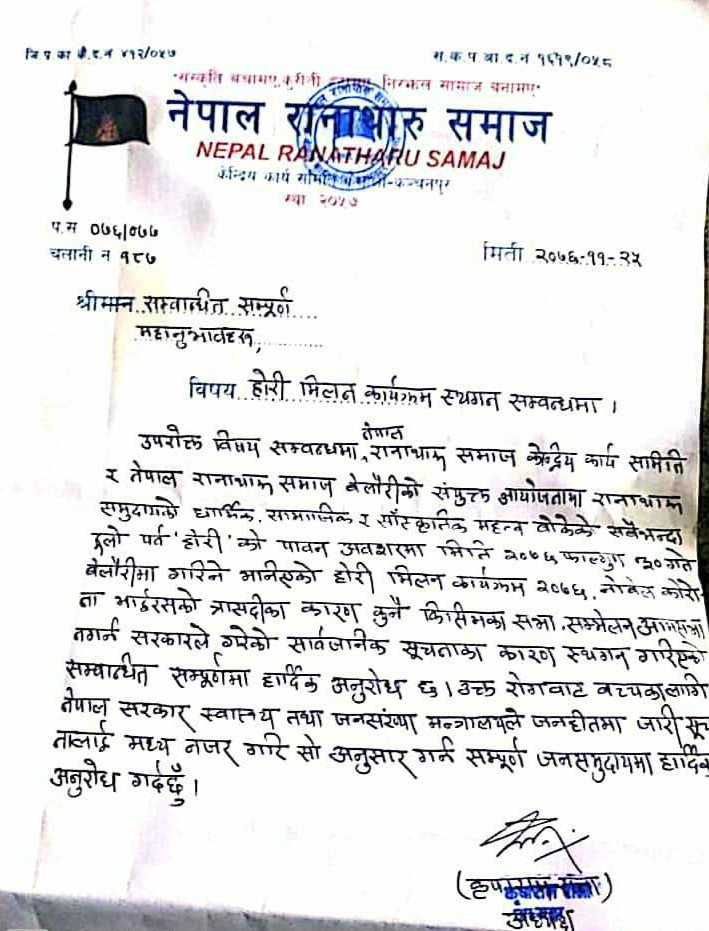 जि.प्र.का.कै.द.नं ४१२/०५७
स.क.प.आ.द.न १६१९/०५८
"संस्कृति बचामए, कुरीती हटामए, निश्छल सामाज बनामए"
नेपाल रानाथारु समाज
NEPAL RANATHARU SAMAJ
केन्द्रिय कार्य समिति कन्चनपुर
स्था २०५७
प.स ०७६/०७७
चलानी न १८७
मिती २०७६-११-२५
श्रीमान सम्वान्धित सम्पूर्ण
महानुभावहरु,
विषय होरी मिलन कार्यक्रम स्थगन सम्वन्धमा ।
उपरोक्त विषय सम्वन्धमा, नेपाल रानाथारु समाज केन्द्रिय कार्य समिति
र नेपाल रानाथारु समाज बेलौरीको संयुक्त आयोजनामा रानाथारु
समुदायको धार्मिक, सामाजिक र साँस्कृतिक महत्व बोकेको सबैभन्दा
ठुलो पर्व 'होरी' को पावन अवसरमा मिति २०७६ फाल्गुण ३० गते
बेलौरीमा गरिने भनिएको होरी मिलन कार्यक्रम २०७६, नोबेल कोरो-
ना भाईरसको त्रासदीका कारण कुनै किसिमका सभा, सम्मेलन, आमसभा
नगर्न सरकारले गरेको सार्वजानिक सूचनाका कारण स्थगन गरिएको
सम्वान्धित सम्पूर्णमा हार्दिक अनुरोध छ । उक्त रोगवाट वच्चकालागि
नेपाल सरकार स्वास्थ्य तथा जनसंख्या मन्त्रालयले जनहीतमा जारी सूच
नालाई मध्य नजर गरि सो अनुसार गर्न सम्पूर्ण जनसमुदायमा हार्दिक
अनुरोध गर्दछुँ ।
(कृपाराम राना)
अध्यक्ष